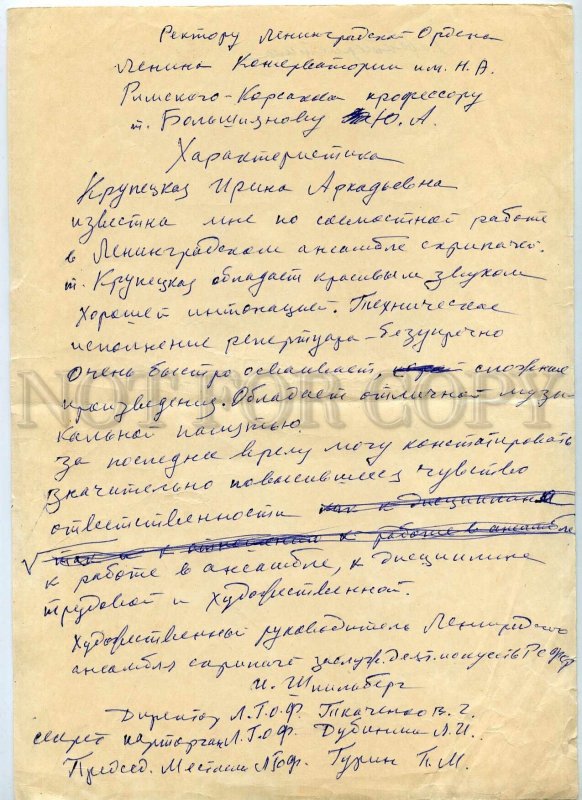 Ректору Ленинградской Ордена
Ленина Консерватории им. Н.А.
Римского-Корсакова профессору
т. Большиянову Ю. А.
Характеристика
Крупецкая Ирина Аркадьевна
известна мне по совместной работе
в Ленинградском ансамбле скрипачей.
т. Крупецкая обладает красивым звуком
хорошей интонацией. Техническое
исполнение репертуара - безупречно
очень быстро осваивает, сложные
произведения. Обладает отличной музы
кальной памятью.
За последнее время могу констатировать
значительно повысившееся чувство
ответственности как к дисциплине
так и к отношении к работе в ансамбле
к работе в ансамбле, к дисциплине
трудовой и художественной.
Художественный руководитель Ленинградского
ансамбля скрипачей заслуж. деят. искусств РСФСР
И. Шпильберг
Директор Л.Г.О.Ф. Ткаченко В. Г.
секрет парторган. Л.Г.О.Ф. Дубинина Л. И.
Председ. Месткома ЛГОФ. Гурин П. М.
NOT FOR COPY